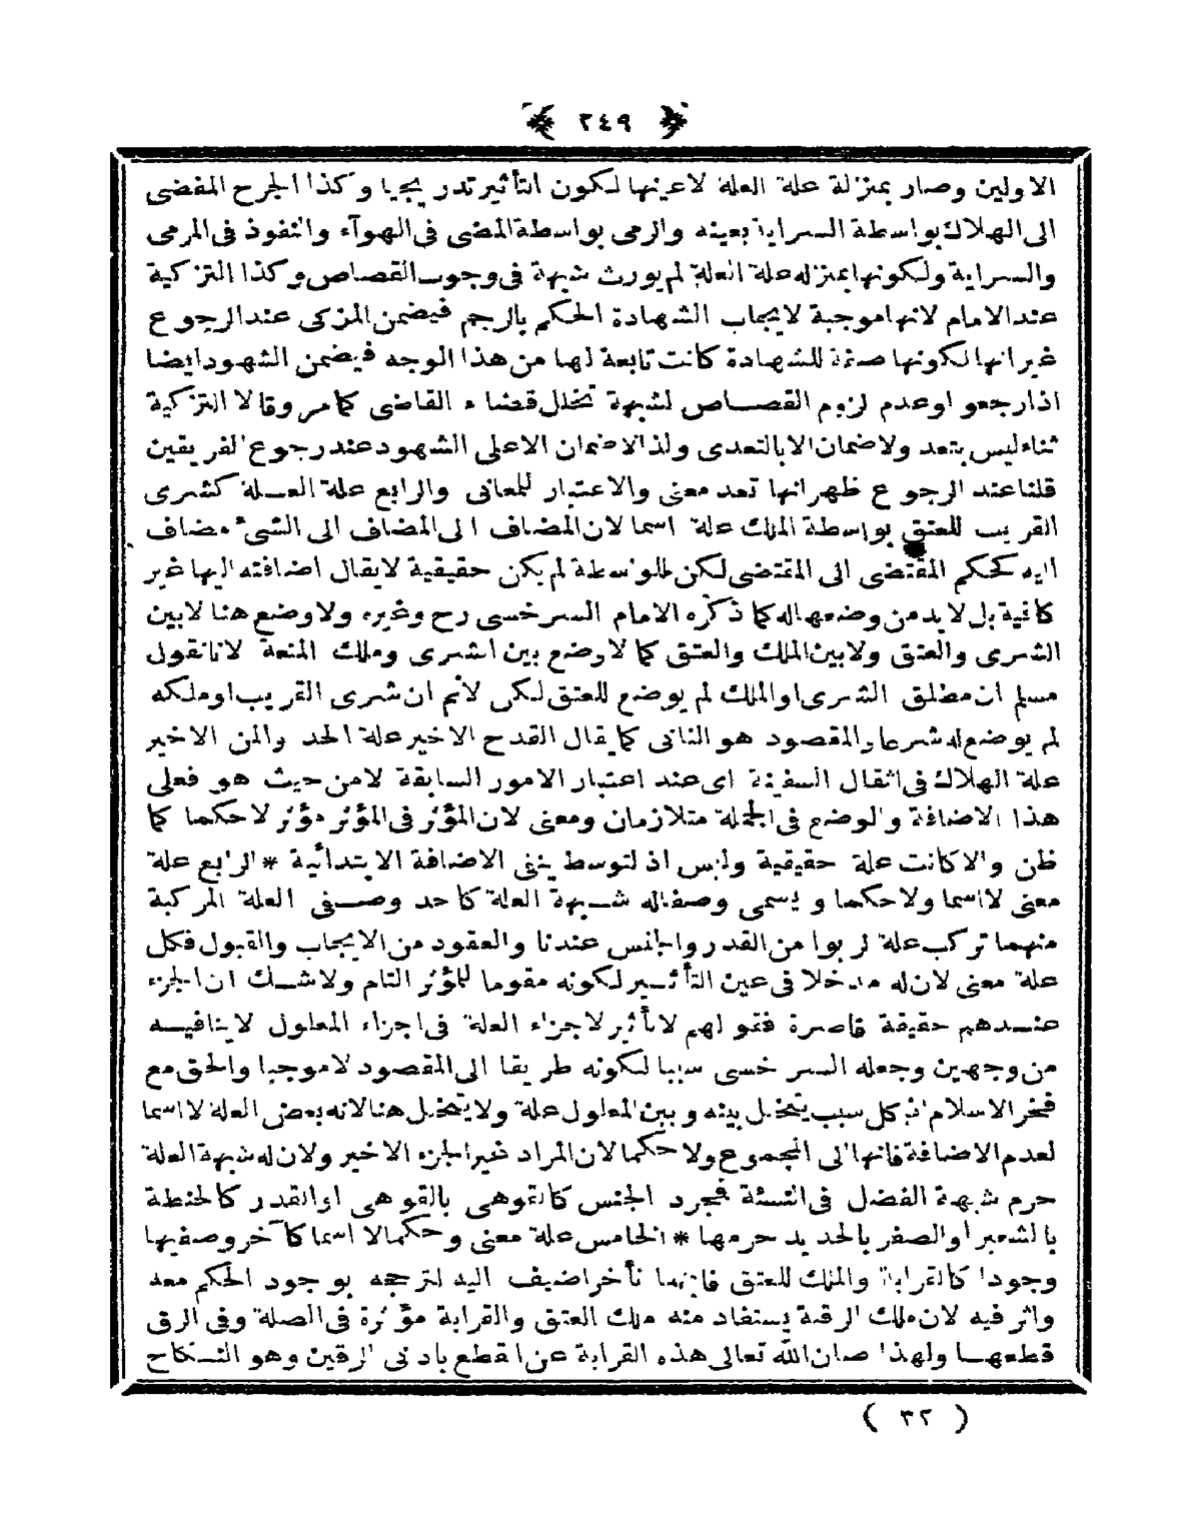 ﴿ ٢٤٩ ﴾
الاولين وصار بمنزلة علة العلة لاعينها لكون التأثير تدريجيا وكذا الجرح المفضى
الى الهلاك بواسطة السراية بعينه والرمى بواسطة المضى فى الهوآء والنفوذ فى المرمى
والسراية ولكونها بمنزله علة العلة لم يورث شبهة فى وجوب القصاص وكذا التزكية
عند الامام لانها موجبة لايجاب الشهادة الحكم بالرجم فيضمن المزكى عند الرجوع
غير انها لكونها صفة للشهادة كانت تابعة لها من هذا الوجه فيضمن الشهود ايضا
اذا رجعو اوعدم لزوم القصاص لشبهة تخلل قضاء القاضى كما مر وقالا التزكية
ثناء ليس بتعد ولا ضمان الا بالتعدى ولذا لا ضمان الا على الشهود عند رجوع الفريقين
قلنا عند الرجوع ظهر انها تعد معنى والاعتبار للمعانى والرابع علة العلة كشرى
القريب للعتق بواسطة الملك علة اسما لان المضاف الى المضاف الى الشئ مضاف
اليه كحكم المقتضى الى المقتضى لكن الوسطة لم يكن حقيقية لايقال اضافته اليها غير
كافية بل لابد من وضعها له كما ذكره الامام السرخسى رح وغيره ولا وضع هنا لابين
الشرى والعتق ولابين الملك والعتق كما لا وضع بين الشرى وملك المتعة لانا نقول
مسلم ان مطلق الشرى او الملك لم يوضع للعتق لكن لانم ان شرى القريب او ملكه
لم يوضع له شرعا والمقصود هو الثانى كما يقال القدح الاخير علة الحد والمن الاخير
علة الهلاك فى اثقال السفينة اى عند اعتبار الامور السابقة لا من حيث هو فعلى
هذا الاضافة والوضع فى الجملة متلازمان ومعنى لان المؤثر فى المؤثر مؤثر لا حكما كما
ظن والا كانت علة حقيقية وليس اذ التوسط ينفى الاضافة الابتدائية * الرابع علة
معنى لا اسما ولا حكما ويسمى وصفاله شبهة العلة كاحد وصفى العلة المركبة
منهما تركب علة الربوا من القدر والجنس عندنا والعقود من الايجاب والقبول فكل
علة معنى لان له مدخلا فى عين التأثير لكونه مقوما للمؤثر التام ولاشك ان الجزء
عندهم حقيقة قاصرة فقولهم لا تأثير لاجزاء العلة فى اجزاء المعلول لاينافيه
من وجهين وجعله السرخسى سببا لكونه طريقا الى المقصود لا موجبا والحق مع
فخر الاسلام اذ كل سبب يتخلل بينه وبين المعلول علة ولا يتخلل هنا لانه بعض العلة لا اسما
لعدم الاضافة فانها الى المجموع ولا حكما لان المراد غير الجزء الاخير ولان له شبهة العلة
حرم شبهة الفضل فى النسئة فمجرد الجنس كالقوهى بالقوهى او القدر كالحنطة
بالشعير او الصفر بالحديد حرمها * الخامس علة معنى وحكما لا اسما كآخر وصفيها
وجودا كالقرابة والملك للعتق فايهما تأخر اضيف اليه لترجحه بوجود الحكم معه
واثر فيه لان ملك الرقبة يستفاد منه ملك العتق والقرابة مؤثرة فى الصلة وفى الرق
قطعها ولهذا صان الله تعالى هذه القرابة عن القطع بادنى الرقين وهو النكاح
( ٣٢ )